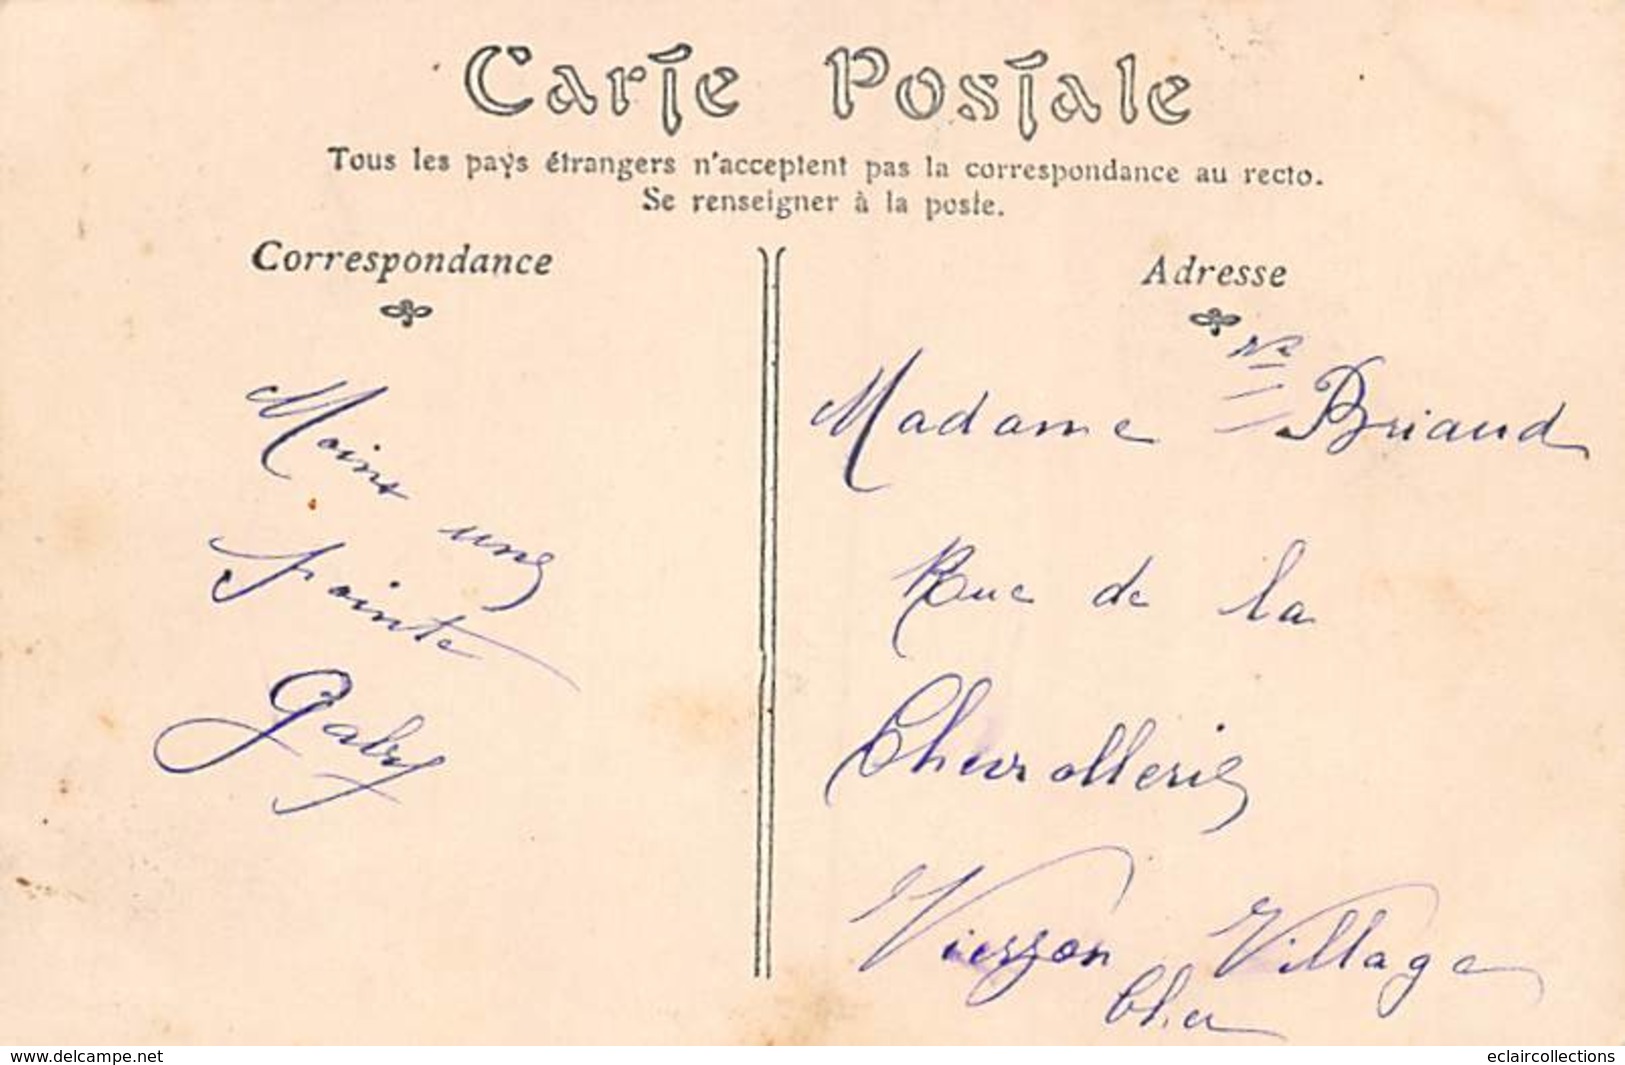 Carte Postale
Tous les pays étrangers n'acceptent pas la correspondance au recto.
Se renseigner à la poste.
Correspondance
Adresse
Moins une
Pointe
Gaby
Nve
Madame Briaud
Rue de la
Chevrollerie
Vierzon Village
Cher
www.delcampe.net
eclaircollections